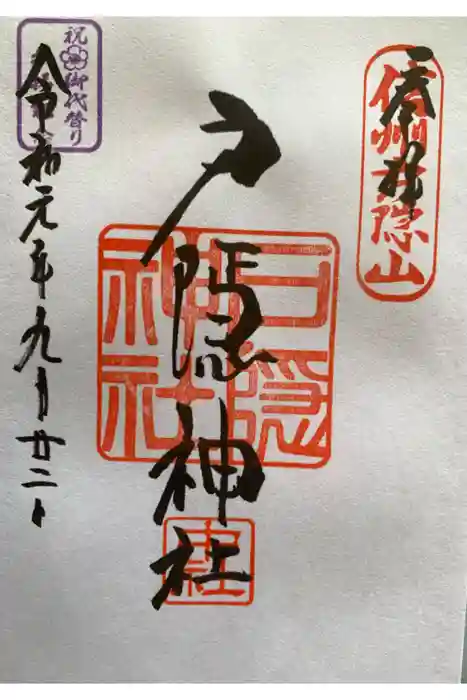 奉拝
信州戸隠山
戸隠神社
戸隠
神社
中社
令和元年九月廿二日
祝
御代替り